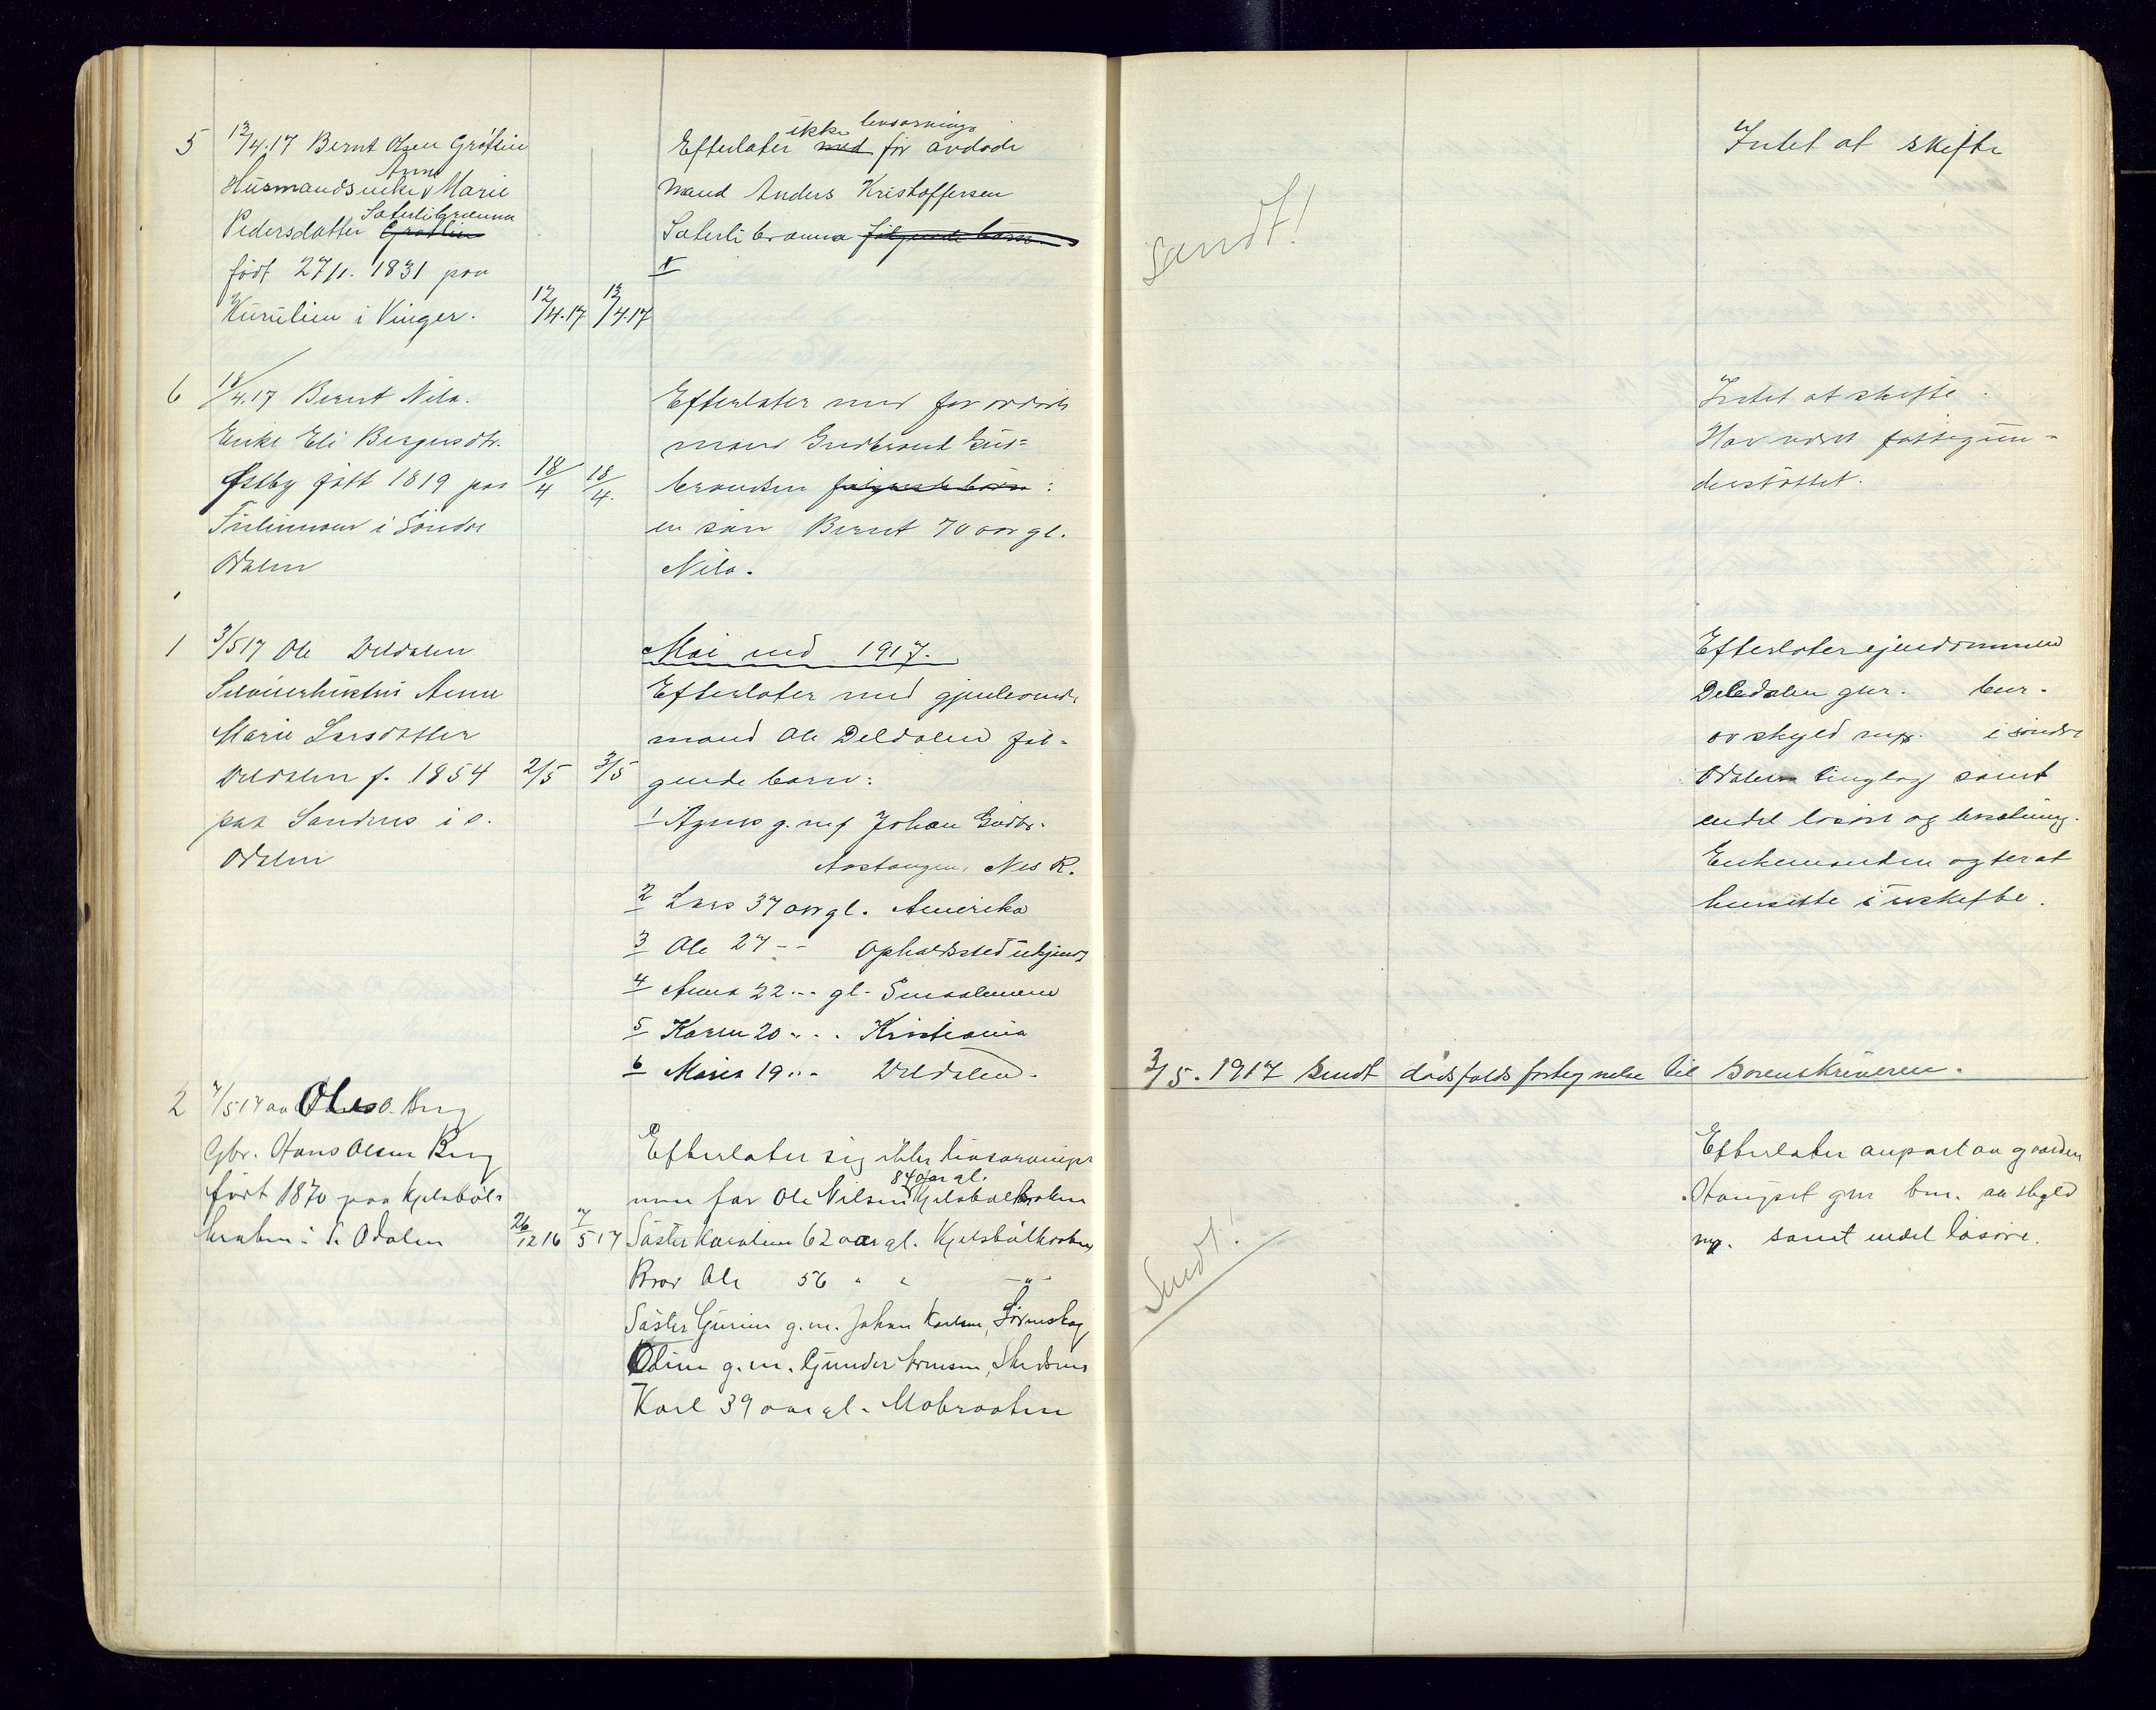 5 13/4.17 Bernt Olsen Grötlien
Husmandsenke Anne Marie
Pedersdatter Grötlien Sæterlibrænna
född 27/1. 1831 paa
Kurulien i Vinger. 12/4.17 13/4.17
ikke livsarvinger
Efterlater med for avdøde
mand Anders Kristoffersen
Sæterlibrænna følgende barn
Intet at skifte
Sendt!
6 18/4.17 Bernt Nilo.
Enke Eli Bergersdtr.
Østby født 1819 paa 18/4 18/4.
i Söndre
Odalen
Efterlater med for avdøde
mand Gudbrand Gud=
brandsen følgende børn:
en søn Bernt 70 aar gl.
Nilo.
Intet at skifte.
Har været fattigun-
derstøttet.
1 3/5 17 Ole Deldalen
Selveierhustru Anne
Marie Larsdatter
Deldalen f. 1854 2/5 3/5
paa Sandnes i s.
Odalen
Mai md 1917.
Efterlater med gjenlevende
mand Ole Deldalen føl-
gende barn:
1 Agnes g. m/ Johan Gudbr.
Aastangen, Nes R.
2 Lars 37 aar gl. Amerika
3 Ole 27 -- Opholdssted ukjendt
4 Anna 22 -- gl. Smaalenene
5 Karen 20 - - - Kristiania
6 Marie 19 - - - Deldalen.
Efterlater eiendommen
Deledalen gnr. bnr.
av skyld mk. i søndre
Odalen tinglag samt
endel løsøre og besætning.
Enkemanden agter at
hensitte i uskifte.
3/5. 1917 sendt dødsfaldsfortegnelse til sorenskriveren.
2 7/5 17 av Ole O. Berg
Gbr. Hans Olsen Berg
født 1870 paa Kjelsböl-
braten i S. Odalen 26/12 16 7/5 17
Efterlater sig ikke livsarvinger
84 aar gl.
men far Ole Nilsen Kjelsbølbraten
Søster Karoline 62 aar gl. Kjelsbølbraten
Bror Ole 56 " " -"-
Søster Gurine g.m. Johan Karlsen, Lørenskog
Oline g.m. Gunder Arnesen,
Karl 39 aar gl. Mobraaten
Sendt!
Efterlater anpart av gaarden
Haugset gnr bnr. av skyld
mk. samt endel løsøre.